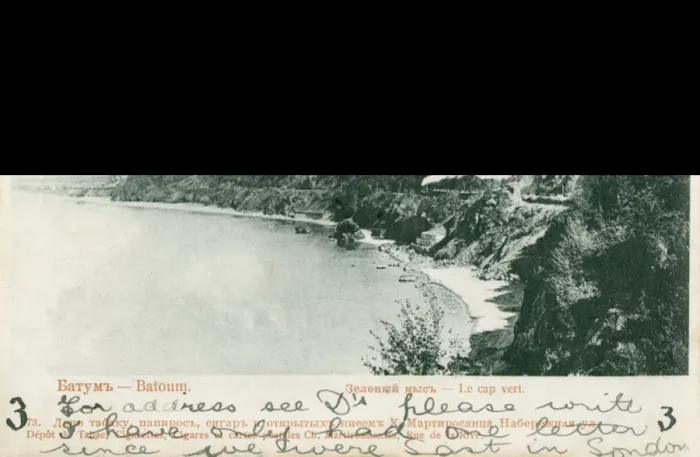 Батумъ — Batoum.
Зеленый мысъ — Le cap vert.
3 For address see D's please write 3
73. Депо табаку, папиросъ, сигаръ и открытыхъ писемъ Х. Мартиросянца, Набережная ул.
Dépôt de Tabac, Cigarettes, Cigares et cartes postales Ch. Rue de
I have only had one letter
since we were last in London